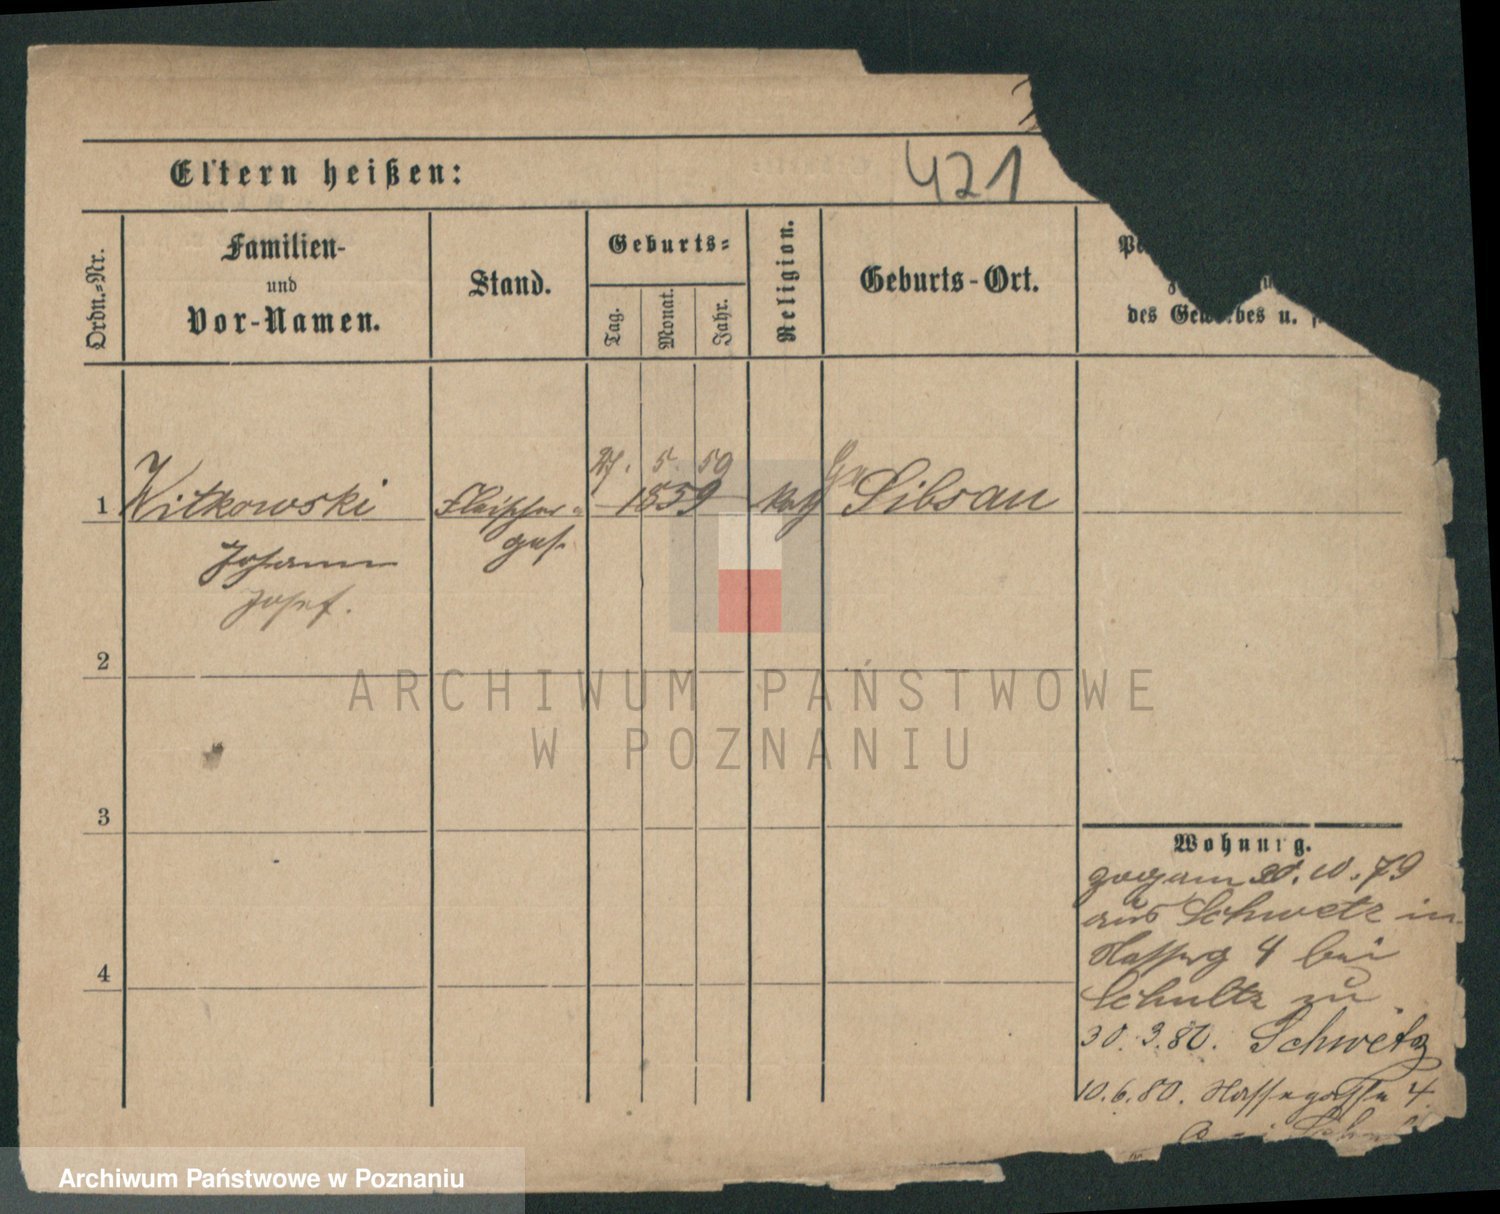 421
Eltern heißen:
Ordn.-Nr.
Familien-
und
Vor-Namen.
Stand.
Geburts-
Tag.
Monat.
Jahr.
Religion.
Geburts-Ort.
des Gewerbes u.
27. 5. 59
1 Witkowski Fleischer- 1859 kath Gr Sibsau
ges.
Johann
Josef.
2
3
4
Wohnung.
zog am 20. 10. 79
aus Schwetz in
4 bei
Schultz zu
30. 3. 80. Schwetz
10. 6. 80. 4
ARCHIWUM PAŃSTWOWE
W POZNANIU
Archiwum Państwowe w Poznaniu